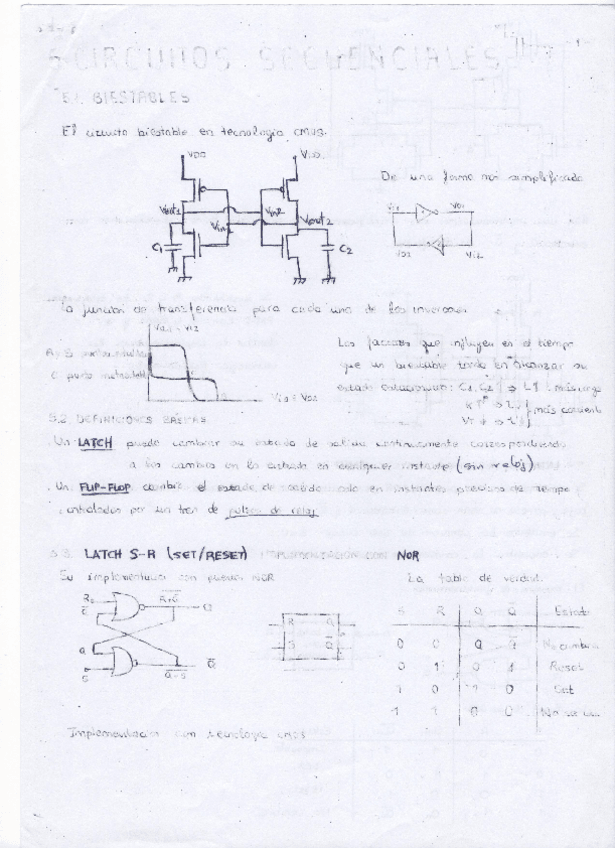 5 CIRCUITOS SECUENCIALES
5.1 BIESTABLES
El circuito biestable en tecnologia CMOS.
VDD
VDD
De una forma más simplificada
Vout1
Vin2
Vout2
Vin1
C1
C2
Vo1
Vo2
Vi2
La función de transferencia para cada una de los inversores
Vo1 = Vi2
Los factores que influyen en el tiempo
A y B
que un biestable tarda en alcanzar su
C punto metaestable
estado estacionario: C1, C2
Vi1 = Vo2
5.2 DEFINICIONES BÁSICAS
. Un LATCH puede cambiar su estado de salida continuamente correspondiendo
a los cambios en la entrada en cualquier instante (sin reloj)
. Un FLIP-FLOP cambia el estado de salida solo en instantes precisos de tiempo
controlados por un tren de pulsos de reloj
5.3. LATCH S-R (SET/RESET) IMPLEMENTACIÓN CON NOR
Su implementacion con puertas NOR
La tabla de verdad.
R
Q̄
Q
Q
S
Q̄
R Q
S Q̄
S R Q Q̄ Estado
0 0 Q Q̄ No cambia
0 1 0 1 Reset
1 0 1 0 Set
1 1 0 0 No se usa
Implementacion con tecnología CMOS